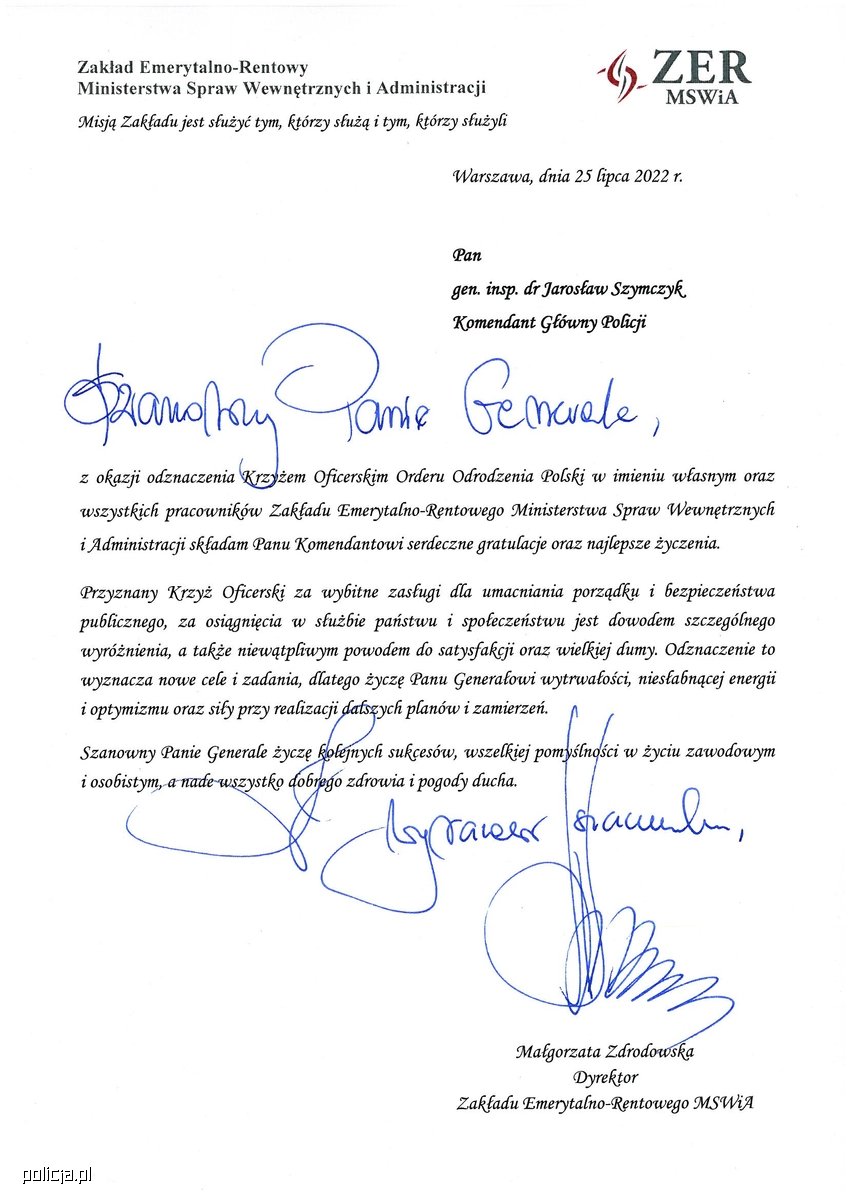 Zakład Emerytalno-Rentowy
Ministerstwa Spraw Wewnętrznych i Administracji
ZER
MSWiA
Misją Zakładu jest służyć tym, którzy służą i tym, którzy służyli
Warszawa, dnia 25 lipca 2022 r.
Pan
gen. insp. dr Jarosław Szymczyk
Komendant Główny Policji
Szanowny Panie Generale,
z okazji odznaczenia Krzyżem Oficerskim Orderu Odrodzenia Polski w imieniu własnym oraz
wszystkich pracowników Zakładu Emerytalno-Rentowego Ministerstwa Spraw Wewnętrznych
i Administracji składam Panu Komendantowi serdeczne gratulacje oraz najlepsze życzenia.
Przyznany Krzyż Oficerski za wybitne zasługi dla umacniania porządku i bezpieczeństwa
publicznego, za osiągnięcia w służbie państwu i społeczeństwu jest dowodem szczególnego
wyróżnienia, a także niewątpliwym powodem do satysfakcji oraz wielkiej dumy. Odznaczenie to
wyznacza nowe cele i zadania, dlatego życzę Panu Generałowi wytrwałości, niesłabnącej energii
i optymizmu oraz siły przy realizacji dalszych planów i zamierzeń.
Szanowny Panie Generale życzę kolejnych sukcesów, wszelkiej pomyślności w życiu zawodowym
i osobistym, a nade wszystko dobrego zdrowia i pogody ducha.
Z wyrazami szacunku,
Małgorzata Zdrodowska
Dyrektor
Zakładu Emerytalno-Rentowego MSWiA
policja.pl